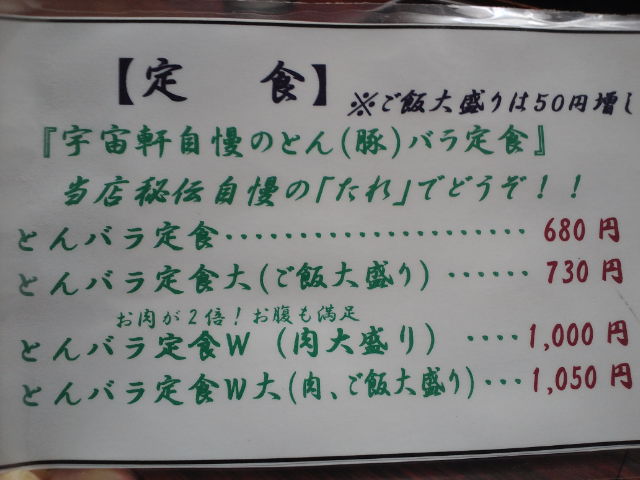 【定 食】 ※ご飯大盛りは50円増し
『宇宙軒自慢のとん(豚)バラ定食』
当店秘伝自慢の「たれ」でどうぞ！！
とんバラ定食・・・・・・・・・・・・・・・・・・・・・ 680 円
とんバラ定食大(ご飯大盛り) ・・・・・・ 730 円
お肉が2倍！お腹も満足
とんバラ定食W (肉大盛り) ・・・・1,000 円
とんバラ定食W大(肉、ご飯大盛り)・・・1,050 円